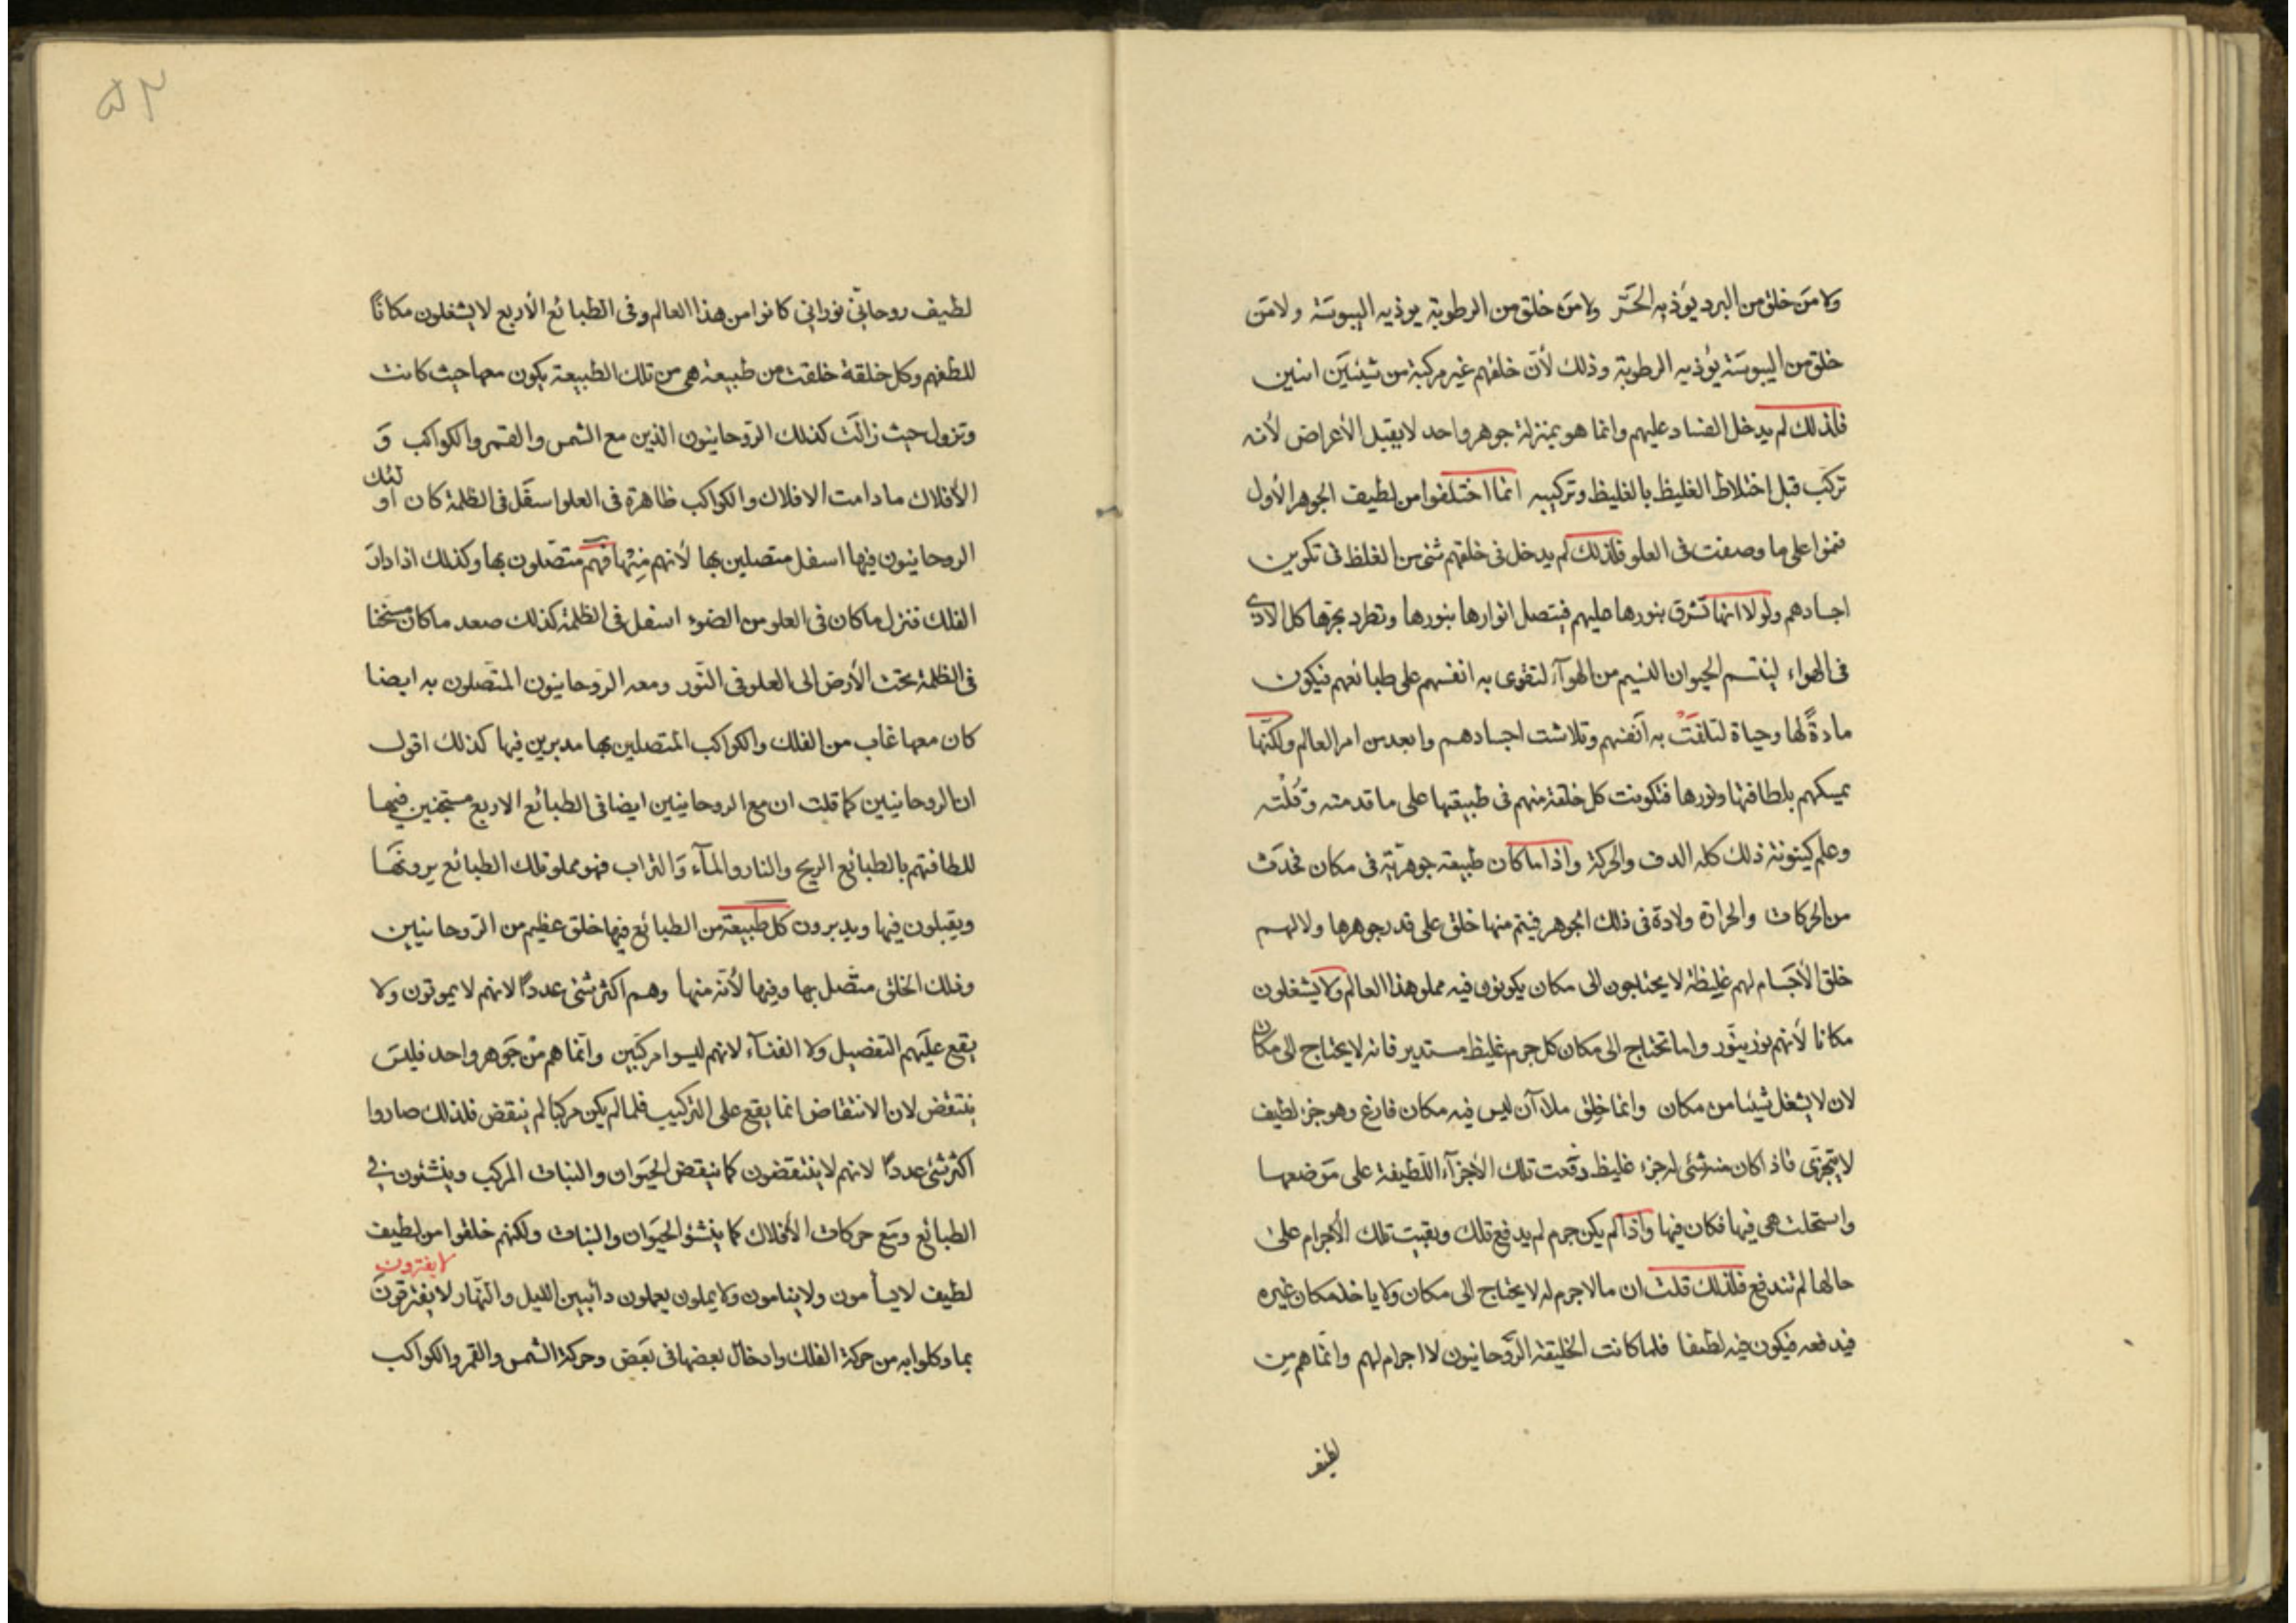 ولا من خلق من البرد يؤذيه الحَرّ ولا من خلق من الرطوبة يوذيه اليبوسَة ولا من
خلق من اليبوسَة يُؤذيه الرطوبة وذلك لأنّ خلقهم غير مركبة من شيئيَن اثنين
فلذلك لم يدخل الفساد عليهم وانما هو بمنزلة جوهر واحد لا يقبل الأعراض لأنه
تركّب قبل اختلاط الغليظ بالغليظ وتركيبه انما اختلفوا من لطيف الجوهر الأول
فنموا على ما وصفت فى العلو فلذلك لم يدخل فى خلقهم شئ من الغلظ فى تكوين
اجسادهم ولولا انها تشرق بنورها عليهم فيتصل انوارها بنورها وتطرد بحرّها كل الاذى
فى الهواء ليتنسم الحيوان النسيم من الهوآء لتقوى به انفسهم على طبائعهم فيكون
مادةً لها وحياة لتلفَتْ به أنفسهم وتلاشت اجسادهم وابعد من امر العالم ولكنّها
يمسكهم بلطافتها ونورها فتكونت كل خلقة منهم فى طبيقتها على ما قدمته وقُلْته
وعلم كينونة ذلك كله الدف والحركة واذا ما كان طبيعة جوهريّة فى مكان فحدَث
من الحركات والحرارة ولادة فى ذلك الجوهر فيتم منها خلق على قدر جوهرها ولا لهم
خلق الأجَسام لهم غليظة لا يحتاجون الى مكان يكونون فيه مملو هذا العالم ولا يشغلون
مكانا لأنهم نور بنَور واما تحتاج الى مكان كل جرم غليظ مستدير فانه لا يحتاج الى مكان
لان لا يشغل شيئا من مكان وانما خلق ملاآن ليس فيه مكان فارغ وهو جزء لطيف
لا يتجزّى فاذا كان منه شئى له جزء غليظ دفعت تلك الأجزآء اللّطيفة على مَوضعها
واستحلت هى فيها فكان فيها واذا لم يكن جرم لم يدفع تلك وبقيت تلك الأجرام على
حالها لم تندفع فلذلك قلت ان ما لا جرم له لا يحتاج الى مكان ولا ياخذ مكان غيره
فيدفعه فيكون فيه لطيفا فلما كانت الخليقة الرَّوحانيون لا اجرام لهم وانّما هم من
لطيف
٥٢
لطيف روحانّي نورانيّ كانوا من هذا العالم وفى الطبائع الأربع لا يشغلون مكاناً
للطفهم وكل خلقة خلقت من طبيعة هى من تلك الطبيعة يكون معها حيث كانت
وتزول حيث زالَت كذلك الرّوحانيون الذين مع الشمس والقمر والكواكب وَ
الأفلاك ما دامت الافلاك والكواكب ظاهرة فى العلو اسفَل فى الظلمة كان اولئك
الروحانيون فيها اسفل متصلين بها لأنهم مِنْها فهم متّصلون بها وكذلك اذا دارَ
الفلك فنزل ما كان فى العلو من الضوء اسفل فى الظلمة كذلك صعد ما كان مستخفا
فى الظلمة تحت الأرض الى العلو فى النّور ومعه الروحانيون المتّصلون به ايضا
كان معها غاب من الفلك والكواكب المتصلين بها مدبرين فيها كذلك اقول
ان الروحانيين كما قلت ان مع الروحانيين ايضا فى الطبائع الاربع مستجنين فيها
للطافتهم بالطبائع الريح والنار والمآء وَالتراب فهو مملو تلك الطبائع يرونهَا
ويقبلون فيها ويدبرون كل طبيعة من الطبائع فيها خلق عظيم من الرّوحانيين
وفلك الخلق متّصل بها وفيها لأنّه منها وهم اكثر شئى عدداً لانهم لا يموتون ولا
يقع علَيهم التفصيل ولا الفنآء لانهم ليسوا مركبّين وانّما هم مْن جَوهر واحد فليسَ
ينتقض لان الانتقاض انما يقع على التركيب فلما لم يكن مركبا لم ينقض فلذلك صاروا
اكثر شئى عدداً لانهم لا ينتقضون كما ينتقض الحيَوان والنبات المركب وينشئون فى
الطبائع ومَع حركات الأفلاك كما ينشؤ الحيَوان والنبات ولكنهم خلقوا من لطيف
لا يفترون
لطيف لا يسأمون ولا ينامون ولا يملون يعملون دائبين الليل والنّهار لا يفترقونَ
بما وكلوا به من حركة الفلك وادخال بعضها فى بعَض وحركة الشمس والقمر والكواكب